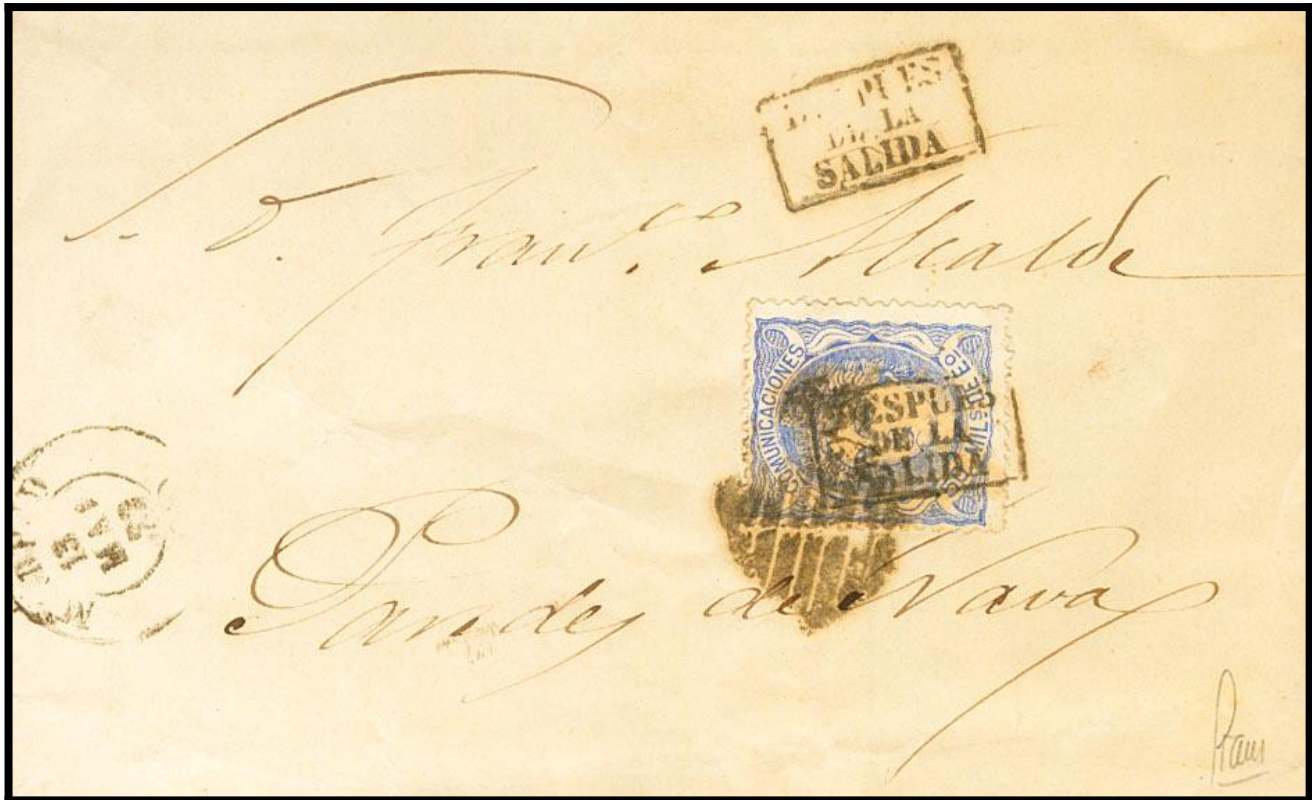 DESPUES
DE LA
SALIDA
S. D. Fran.co Alcalde
COMUNICACIONES
50 MILs DE Eo
DESPUES
DE LA
SALIDA
Paredes de Nava